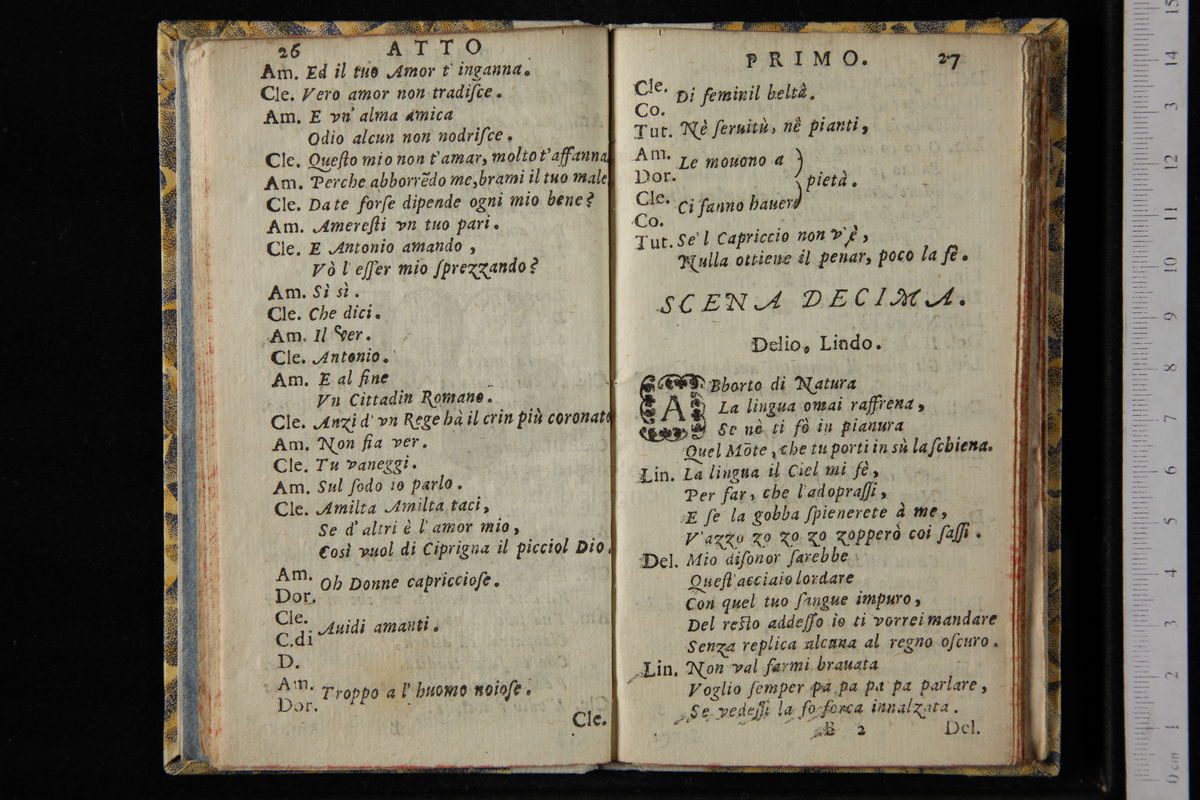 26 ATTO
Am. Ed il tuo Amor t' inganna.
Cle. Vero amor non tradiſce.
Am. E vn' alma amica
Odio alcun non nodriſce.
Cle. Queſto mio non t'amar, molto t'affanna
Am. Perche abborrẽdo me, brami il tuo male
Cle. Da te forſe dipende ogni mio bene?
Am. Amereſti vn tuo pari.
Cle. E Antonio amando,
Vò l'eſſer mio ſprezzando?
Am. Sì sì.
Cle. Che dici.
Am. Il Ver.
Cle. Antonio.
Am. E al fine
Vn Cittadin Romano.
Cle. Anzi d' vn Rege hà il crin più coronato
Am. Non fia ver.
Cle. Tu vaneggi.
Am. Sul ſodo io parlo.
Cle. Amilta Amilta taci,
Se d' altri è l' amor mio,
Così vuol di Ciprigna il picciol Dio.
Am.
Dor. Oh Donne capriccioſe.
Cle.
C.di Auidi amanti.
D.
Am.
Dor. Troppo a l' huomo noioſe.
Cle.
PRIMO. 27
Cle. Di feminil beltà.
Co.
Tut. Nè ſeruitù, nè pianti,
Am. Le mouono a
Dor. pietà.
Cle. Ci fanno hauere
Co.
Tut. Se'l Capriccio non v'è,
Nulla ottiene il penar, poco la fè.
SCENA DECIMA.
Delio, Lindo.
ABborto di Natura
La lingua omai raffrena,
Se nò ti fò in pianura
Quel Mõte, che tu porti in sù la ſchiena.
Lin. La lingua il Ciel mi fè,
Per far, che l'adopraſſi,
E ſe la gobba ſpienerete à me,
V'azzo zo zo zo zopperò coi ſaſſi.
Del. Mio diſonor ſarebbe
Queſt' acciaio lordare
Con quel tuo ſangue impuro,
Del reſto addeſſo io ti vorrei mandare
Senza replica alcuna al regno oſcuro.
Lin. Non val farmi brauata
Voglio ſemper pa pa pa pa parlare,
Se vedeſſi la fo forca innalzata.
B 2 Del.
0 cm 1 2 3 4 5 6 7 8 9 10 11 12 3 14 15